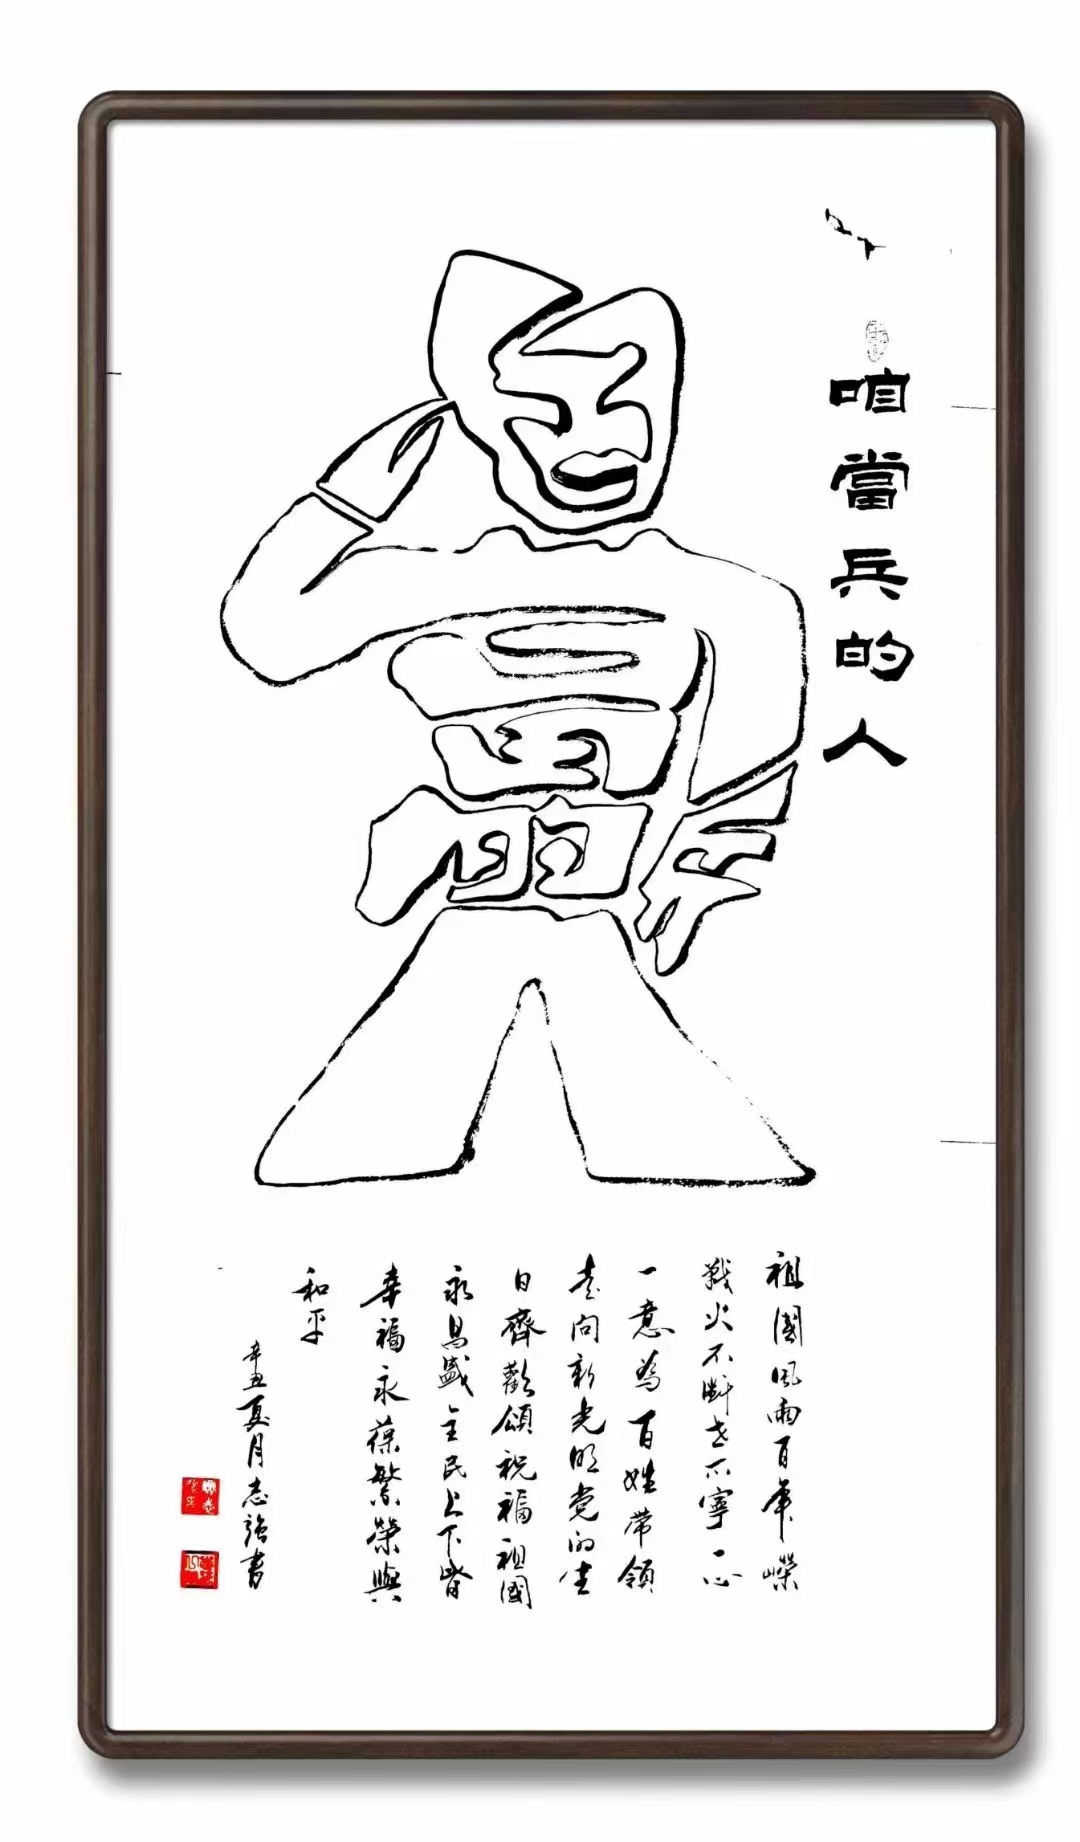 咱當兵的人
祖國風雨百年嶸
戰火不斷世不寧一心
一意為百姓帶領
走向新光明黨的生
日齊歡頌祝福祖國
永昌盛全民上下皆
幸福永葆繁榮與
和平
辛丑夏月志強書